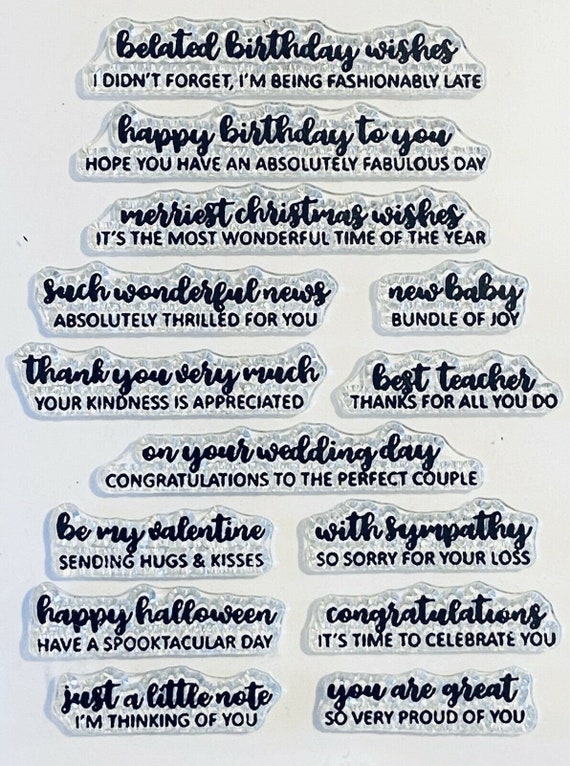 belated birthday wishes
I DIDN'T FORGET, I'M BEING FASHIONABLY LATE
happy birthday to you
HOPE YOU HAVE AN ABSOLUTELY FABULOUS DAY
merriest christmas wishes
IT'S THE MOST WONDERFUL TIME OF THE YEAR
such wonderful news
ABSOLUTELY THRILLED FOR YOU
new baby
BUNDLE OF JOY
thank you very much
YOUR KINDNESS IS APPRECIATED
best teacher
THANKS FOR ALL YOU DO
on your wedding day
CONGRATULATIONS TO THE PERFECT COUPLE
be my valentine
SENDING HUGS & KISSES
with sympathy
SO SORRY FOR YOUR LOSS
happy halloween
HAVE A SPOOKTACULAR DAY
congratulations
IT'S TIME TO CELEBRATE YOU
just a little note
I'M THINKING OF YOU
you are great
SO VERY PROUD OF YOU